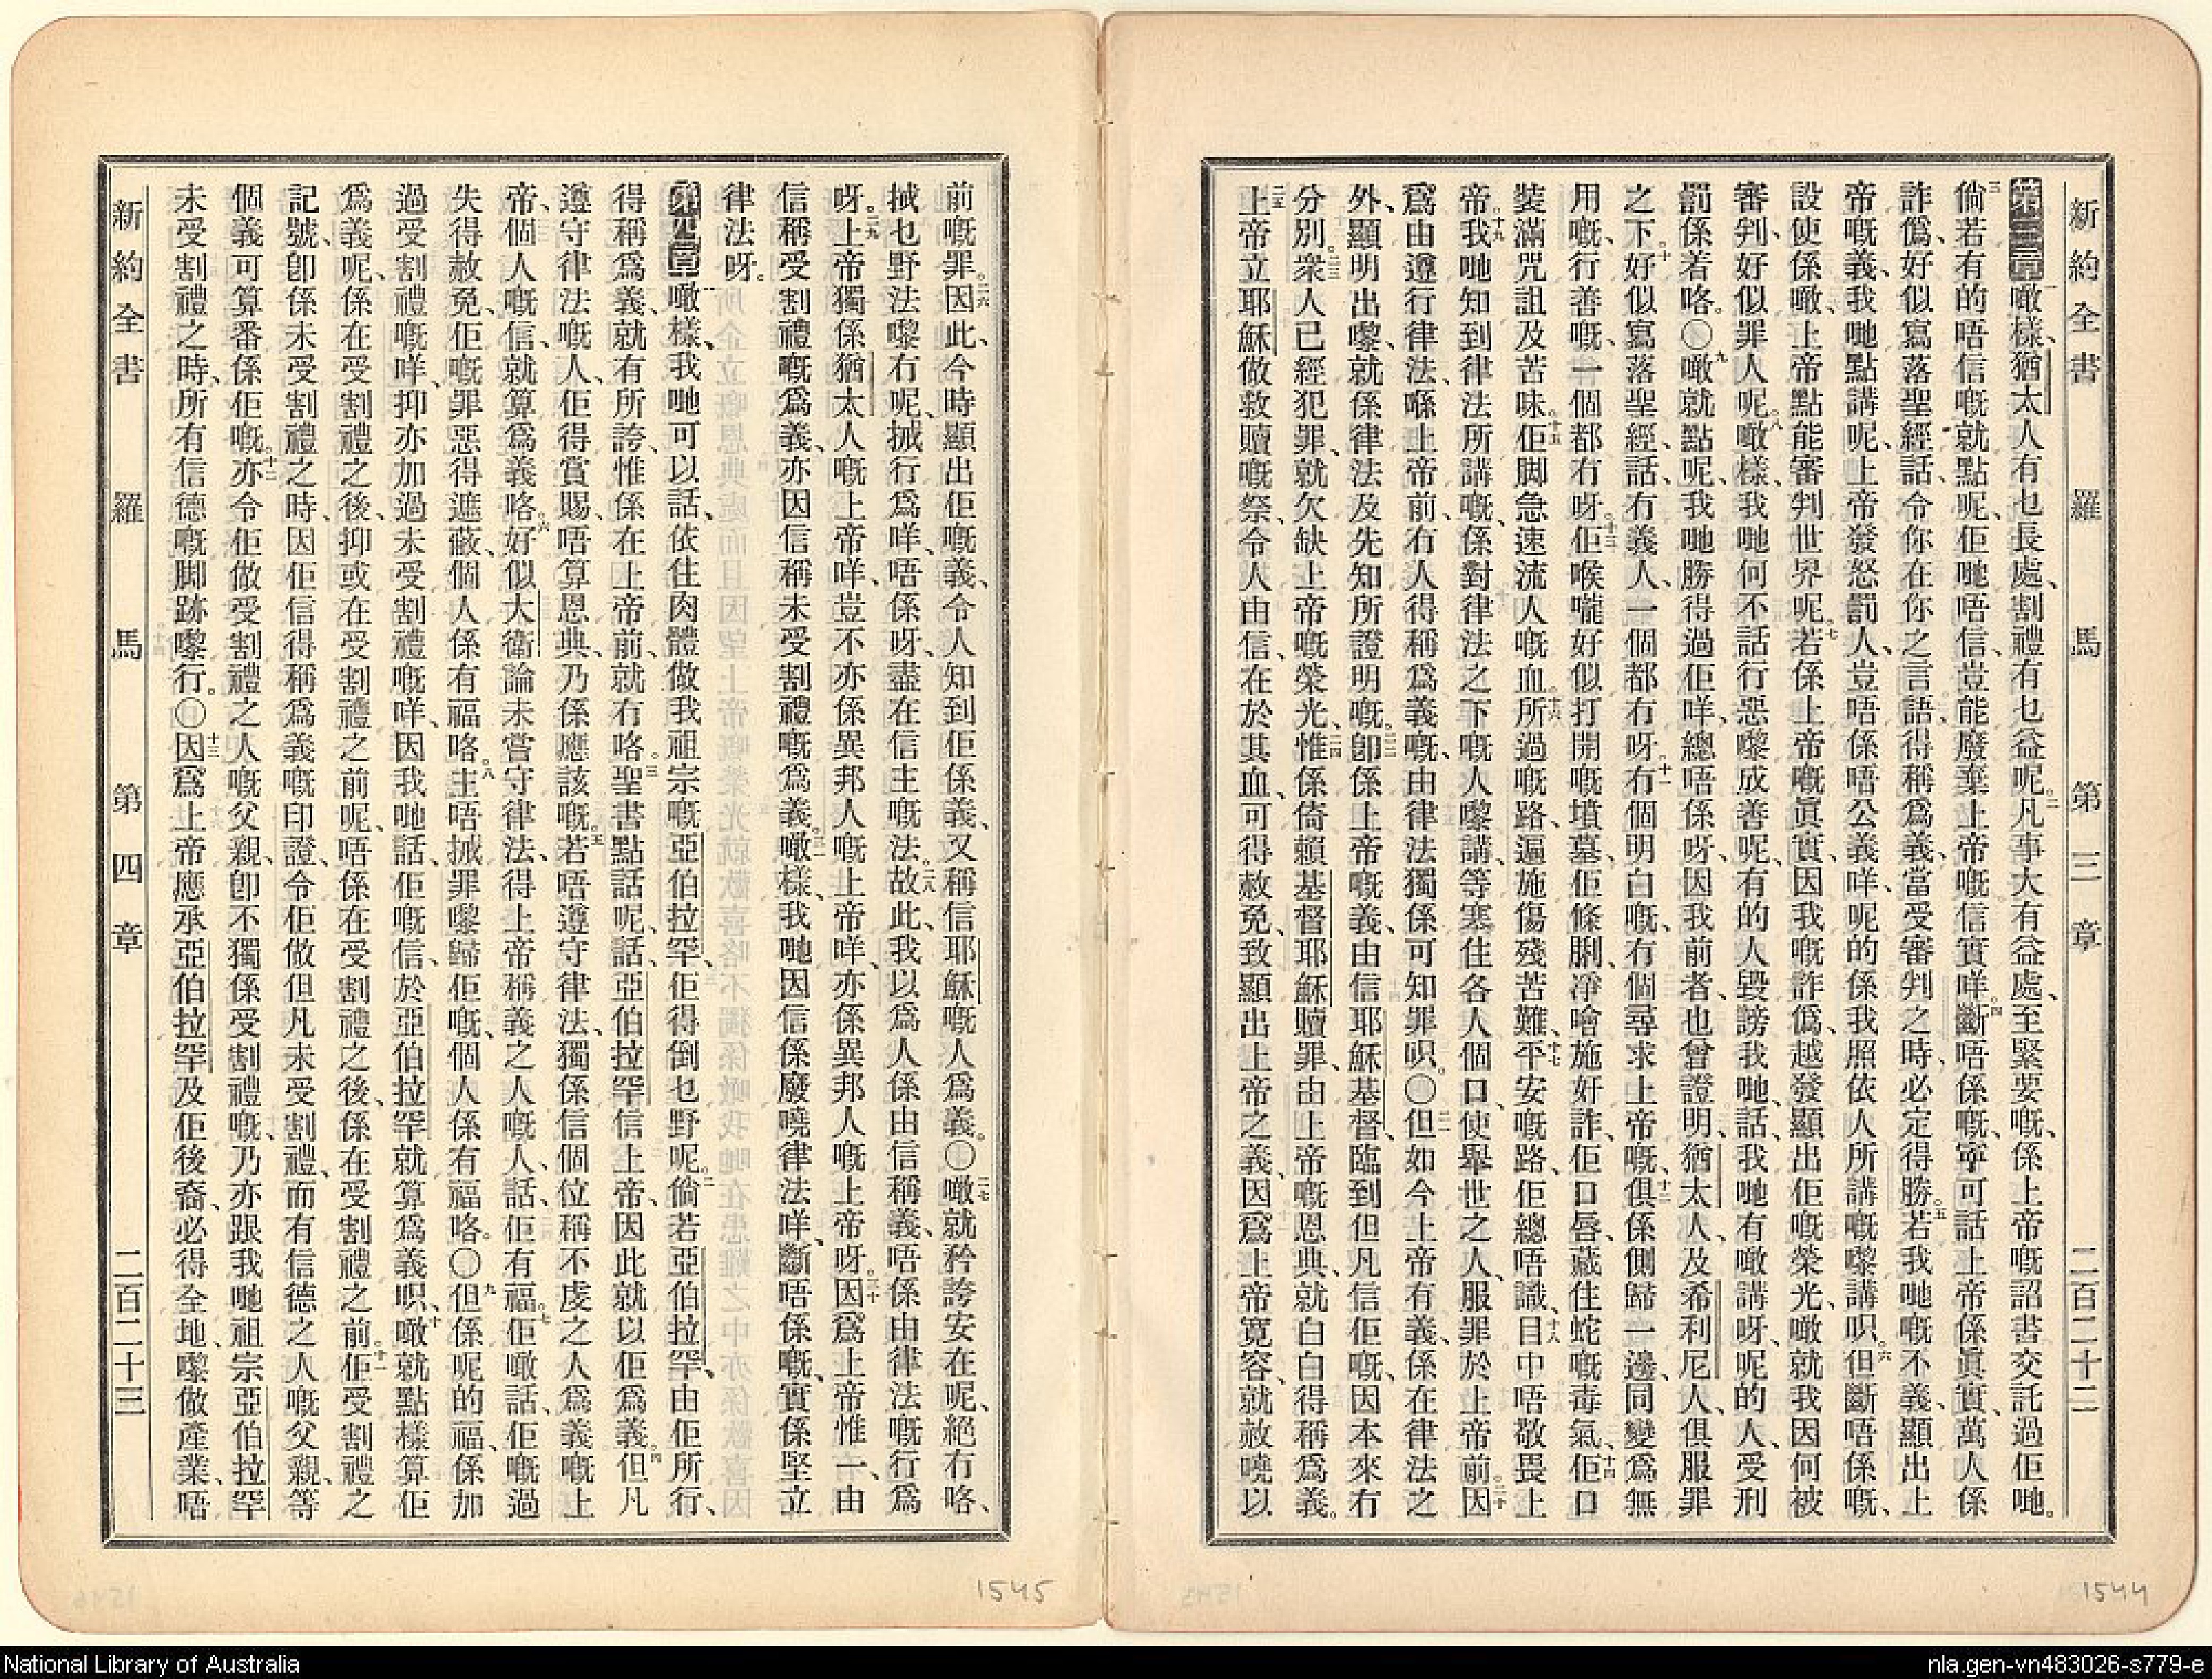 新約全書 羅馬 第三章 二百二十二
第三章一噉樣、猶太人有乜長處、割禮有乜益呢。二凡事大有益處、至緊要嘅、係上帝嘅詔書交託過佢哋。
三倘若有的唔信嘅就點呢、佢哋唔信、豈能廢棄上帝嘅信實咩。四斷唔係嘅、寧可話上帝係眞實、萬人係
詐僞、好似寫落聖經話、令你在你之言語、得稱爲義、當受審判之時、必定得勝。五若我哋嘅不義、顯出上
帝嘅義、我哋點講呢、上帝發怒罰人、豈唔係唔公義咩、呢的係我照依人所講嘅嚟講呮。六但斷唔係嘅、
設使係噉、上帝點能審判世界呢。七若係上帝嘅眞實、因我嘅詐僞、越發顯出佢嘅榮光、噉就我因何被
審判、好似罪人呢。八噉樣、我哋何不話行惡嚟成善呢、有的人毀謗我哋、話、我哋有噉講呀、呢的人、受刑
罰係着咯。〇九噉就點呢、我哋勝得過佢咩、總唔係呀、因我前者、也曾證明、猶太人及希利尼人、俱服罪
之下。十好似寫落聖經、話、有義人、一個都冇呀。十一有個明白嘅、有個尋求上帝嘅、十二俱係側歸一邊、同變爲無
用嘅、行善嘅、一個都冇呀。十三佢喉嚨好似打開嘅墳墓、佢條脷、凈噲施好詐、佢口唇、藏住蛇嘅毒氣、十四佢口
裝滿咒詛及苦味。十五佢脚急速流人嘅血。十六所過嘅路、遍施傷殘苦難、十七平安嘅路、佢總唔識、十八目中唔敬畏上
帝。十九我哋知到律法所講嘅、係對律法之下嘅人嚟講、等塞住各人個口、使舉世之人、服罪於上帝前。二十因
爲由遵行律法、喺上帝前、冇人得稱爲義嘅、由律法獨係可知罪呮。〇二一但如今上帝有義、係在律法之
外、顯明出嚟、就係律法及先知所證明嘅。二二卽係上帝嘅義、由信耶穌基督、臨到但凡信佢嘅、因本來冇
分別。二三衆人已經犯罪、就欠缺上帝嘅榮光、二四惟係倚賴基督耶穌贖罪、由上帝嘅恩典、就白白得稱爲義。
二五上帝立耶穌做救贖嘅祭、令人由信、在於其血、可得赦免、致顯出上帝之義、因爲上帝寬容、就赦曉以
前嘅罪。二六因此、今時顯出佢嘅義、令人知到佢係義、又稱信耶穌嘅人爲義。〇二七噉就矜誇安在呢、絕冇咯、
揻乜野法嚟冇呢、揻行爲咩、唔係呀、盡在信主嘅法。二八故此、我以爲人係由信稱義、唔係由律法嘅行爲
呀。二九上帝獨係猶太人嘅上帝咩、豈不亦係異邦人嘅上帝咩、亦係異邦人嘅上帝呀。三十因爲上帝惟一、由
信稱受割禮嘅爲義、亦因信稱未受割禮嘅爲義。三一噉樣、我哋因信係廢曉律法咩、斷唔係嘅、實係堅立
律法呀。
第四章一噉樣、我哋可以話、依住肉體做我祖宗嘅亞伯拉罕、佢得倒乜野呢。二倘若亞伯拉罕、由佢所行、
得稱爲義、就有所誇、惟係在上帝前、就冇咯。三聖書點話呢、話、亞伯拉罕信上帝、因此就以佢爲義。四但凡
遵守律法嘅人、佢得賞賜、唔算恩典、乃係應該嘅。五若唔遵守律法、獨係信個位稱不虔之人爲義嘅上
帝、個人嘅信、就算爲義咯。六好似大衛論未嘗守律法、得上帝稱義之人嘅人、話、佢有福。七佢噉話、佢嘅過
失得赦免、佢嘅罪惡得遮蔽、個人係有福咯。八主唔揻罪嚟歸佢嘅、個人係有福咯。〇九但係呢的福、係加
過受割禮嘅咩、抑亦加過未受割禮嘅咩、因我哋話、佢嘅信、於亞伯拉罕就算爲義呮、十噉就點樣算佢
爲義呢、係在受割禮之後、抑或在受割禮之前呢、唔係在受割禮之後、係在受割禮之前。十一佢受割禮之
記號、卽係未受割禮之時、因佢信得稱爲義嘅印證、令佢做但凡未受割禮、而有信德之人嘅父親、等
個義可算番係佢嘅。十二亦令佢做受割禮之人嘅父親、卽不獨係受割禮嘅、乃亦跟我哋祖宗亞伯拉罕
未受割禮之時、所有信德嘅脚跡嚟行。〇十三因爲上帝應承亞伯拉罕及佢後裔、必得全地、嚟做產業、唔
新約全書 羅馬 第四章 二百二十三
1545
1544
National Library of Australia
nla.gen-vn483026-s779-e